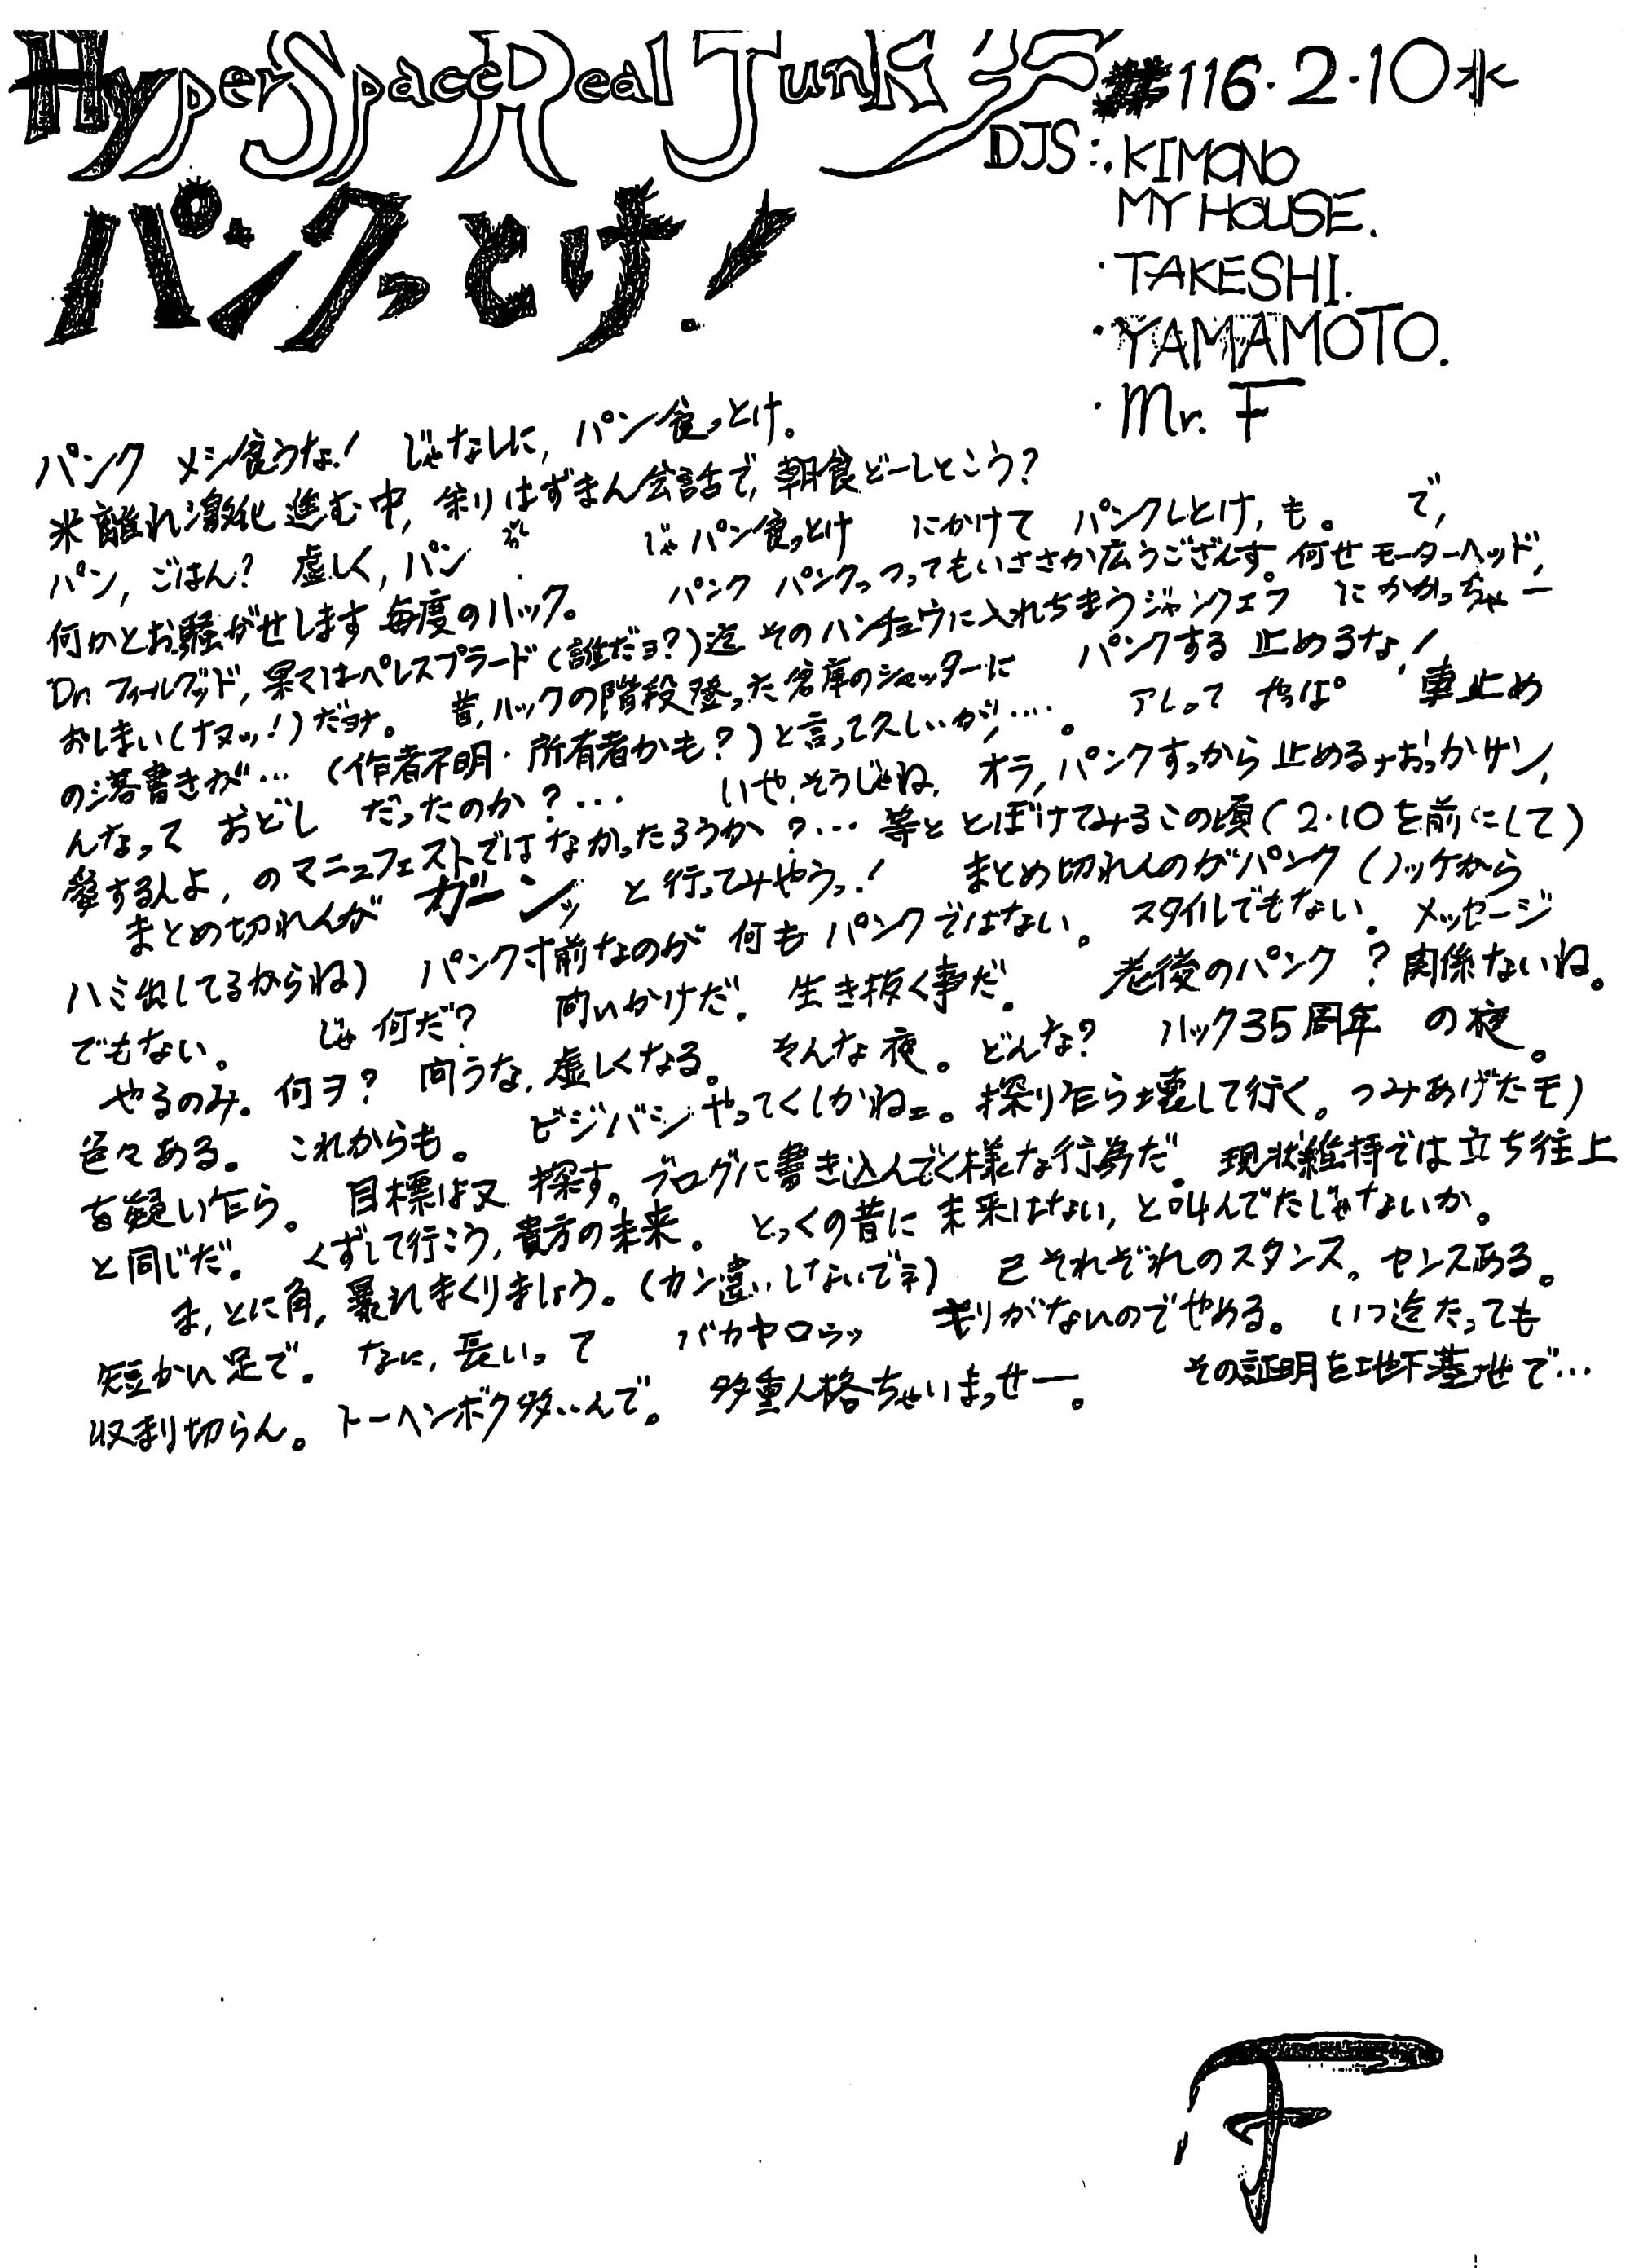 HyperSpaceReal Junk #116・2・10水
DJS:・KIMONO
MY HOUSE.
・TAKESHI.
・YAMAMOTO.
・Mr. F
パンクっとけ!
パンク メシ食うな! じゃなしに, パン食っとけ。
米離れ激化進む中, 余りはずまん会話で, 朝食どーしとこう?
パン, ごはん? 虚しく, パン じゃパン食っとけ にかけて パンクしとけ, も。 で,
何かとお騒がせします毎度のハック。 パンク パンクっつってもいささか広うござんす。何せモーターヘッド,
Dr. フィールグッド, 果てはペレスプラード(誰だヨ?)迄 そのハンチュウに入れちまうジャンクエフ にかかっちゃー
おしまい(ナヌッ!)だヨナ。 昔, ハックの階段登った倉庫のシャッターに パンクする 止めるな!
の落書きが… (作者不明・所有者かも?)と言って久しいが,…。 アレって やっぱ 車止め
んなって おどし だったのか?… いや, そうじゃね, オラ, パンクすっから止めるナおっかサン,
愛する人よ, のマニュフェストではなかったろうか?… 等ととぼけてみるこの頃(2・10を前にして)
まとめ切れんが ガーンッ と行ってみやうっ! まとめ切れんのがパンク (ノッケから
ハミ出してるからね) パンク寸前なのが 何もパンクではない。 スタイルでもない。 メッセージ
でもない。 じゃ何だ? 問いかけだ。 生き抜く事だ。 老後のパンク ? 関係ないね。
やるのみ。 何ヲ? 問うな, 虚しくなる。 そんな夜。 どんな? ハック35周年 の夜。
色々ある。 これからも。 ビジバシやってくしかねェ。 探り乍ら壊して行く。 つみあげたモノ
を疑い乍ら。 目標は又 探す。 ブログに書き込んでく様な行為だ。 現状維持では立ち往上
と同じだ。 くずして行こう, 貴方の未来。 とっくの昔に 未来はない, と叫んでたじゃないか。
ま, とに角, 暴れまくりましょう。 (カン違いしないでネ) 己それぞれのスタンス。 センスある。
短かい足で。 なに, 長いって バカヤロウッ キリがないのでやめる。 いつ迄たっても
収まり切らん。 トーヘンボク多いんで。 多重人格ちゃいまっせー。 その証明を地下基地で…
F